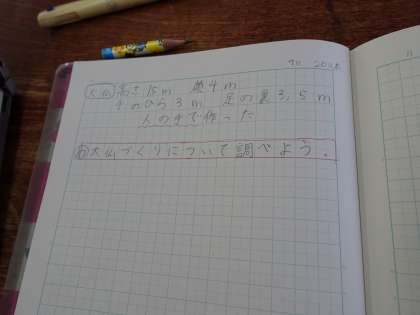 大仏 高さ15m 顔4m
手のひら3m 足の裏3,5m
人の手で作った
め 大仏づくりについて調べよう。